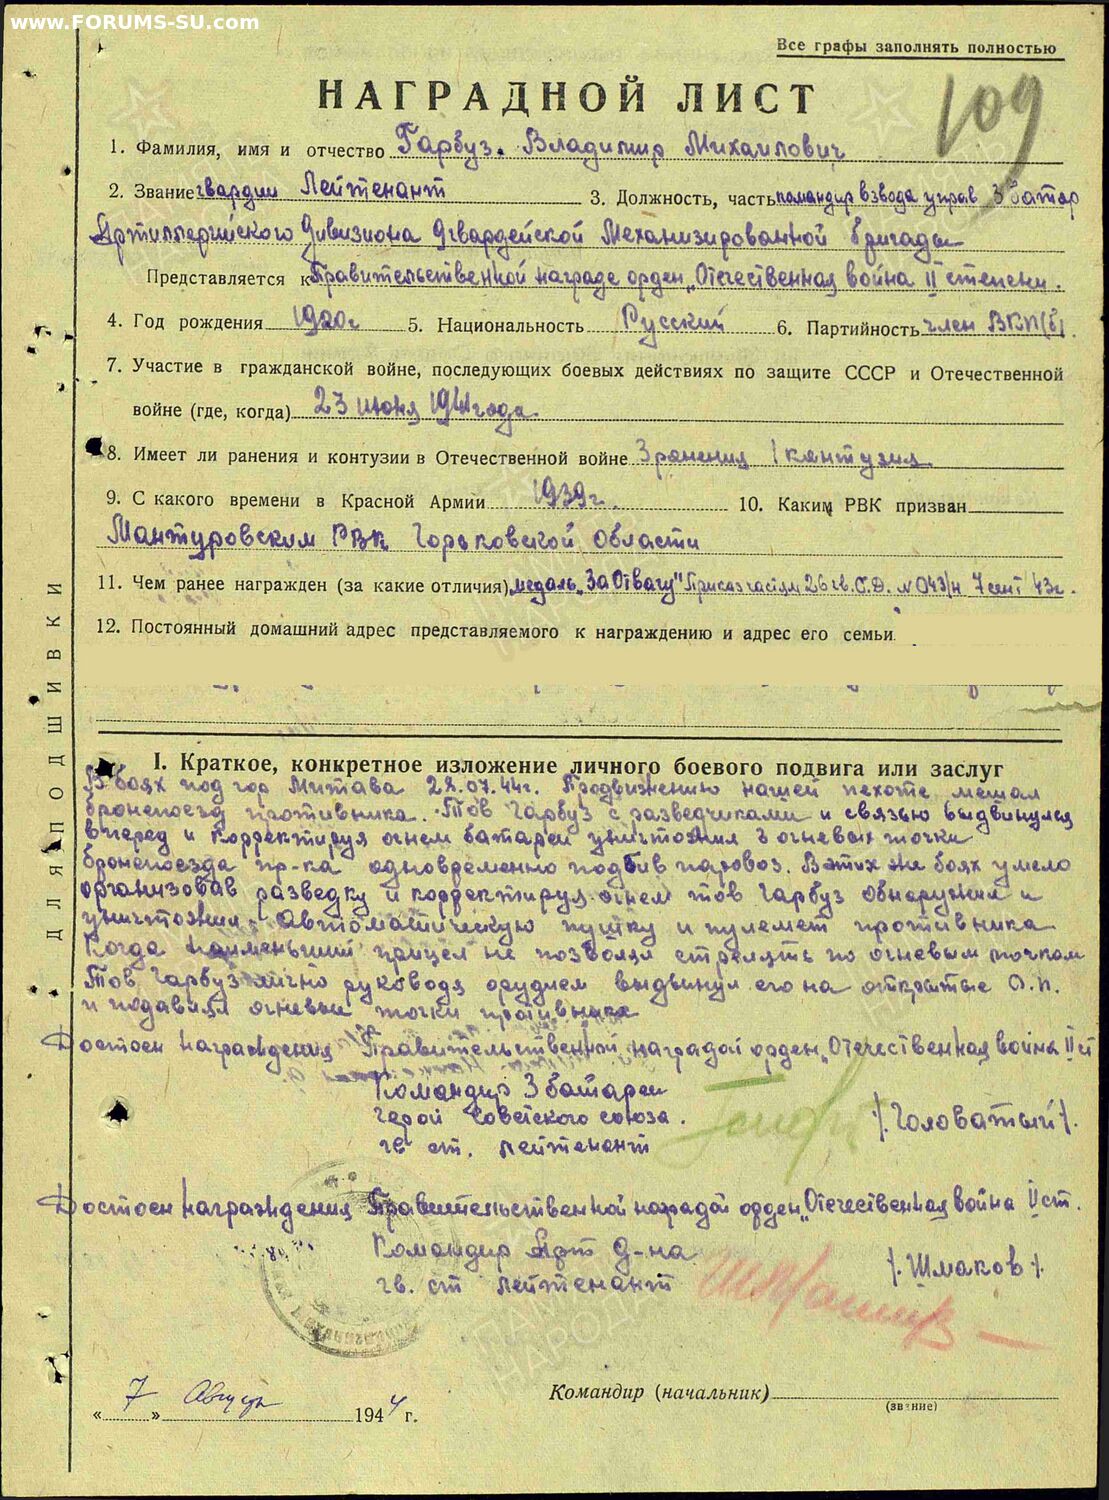 www.FORUMS-SU.com
Все графы заполнять полностью
109
НАГРАДНОЙ ЛИСТ
1. Фамилия, имя и отчество Гарбуз. Владимир Михаилович
2. Звание гвардии Лейтенант 3. Должность, часть командир взвода управ 3 батар
Артиллерийского Дивизиона 9 гвардейской Механизированной бригады
Представляется к Правительственной награде орден „Отечественная война II степени.
4. Год рождения 1920г 5. Национальность Русский 6. Партийность член ВКП(б).
7. Участие в гражданской войне, последующих боевых действиях по защите СССР и Отечественной
войне (где, когда) 23 июня 1941 года.
8. Имеет ли ранения и контузии в Отечественной войне 3 ранения 1 кантузия.
9. С какого времени в Красной Армии 1939г. 10. Каким РВК призван
Мантуровским РВК Горьковской области
11. Чем ранее награжден (за какие отличия) медаль „За Отвагу" Приказ частям 26 гв. С.Д. N 043/н 7 сент 43г.
12. Постоянный домашний адрес представляемого к награждению и адрес его семьи
ДЛЯ ПОДШИВКИ
I. Краткое, конкретное изложение личного боевого подвига или заслуг
В боях под гор Митава 28.07.44г. Продвижению нашей пехоте мешал
бронепоезд противника. Тов Гарбуз с разведчиками и связью выдвинулся
вперед и корректируя огнем батареи уничтожил 3 огневых точки
бронепоезда пр-ка одновременно подбив паровоз. В этих же боях умело
организовав разведку и корректируя огнем тов Гарбуз обнаружил и
уничтожил Автоматическую пушку и пулемет противника
Когда наименьший прицел не позволял стрелять по огневым точкам
Тов Гарбуз лично руководя орудием выдвинул его на открытые О.П.
и подавил огневые точки противника
Достоен награждения Правительственной наградой орден „Отечественная война II ст
Командир 3 батареи
Герой Советского союза.
гв ст. лейтенант /.Головатый/.
Достоен награждения Правительственной наградой орден „Отечественная война II ст.
Командир Арт Д-на
гв. ст лейтенант /.Шмаков/.
Командир (начальник)
(звание)
« 7 » Августа 1944 г.